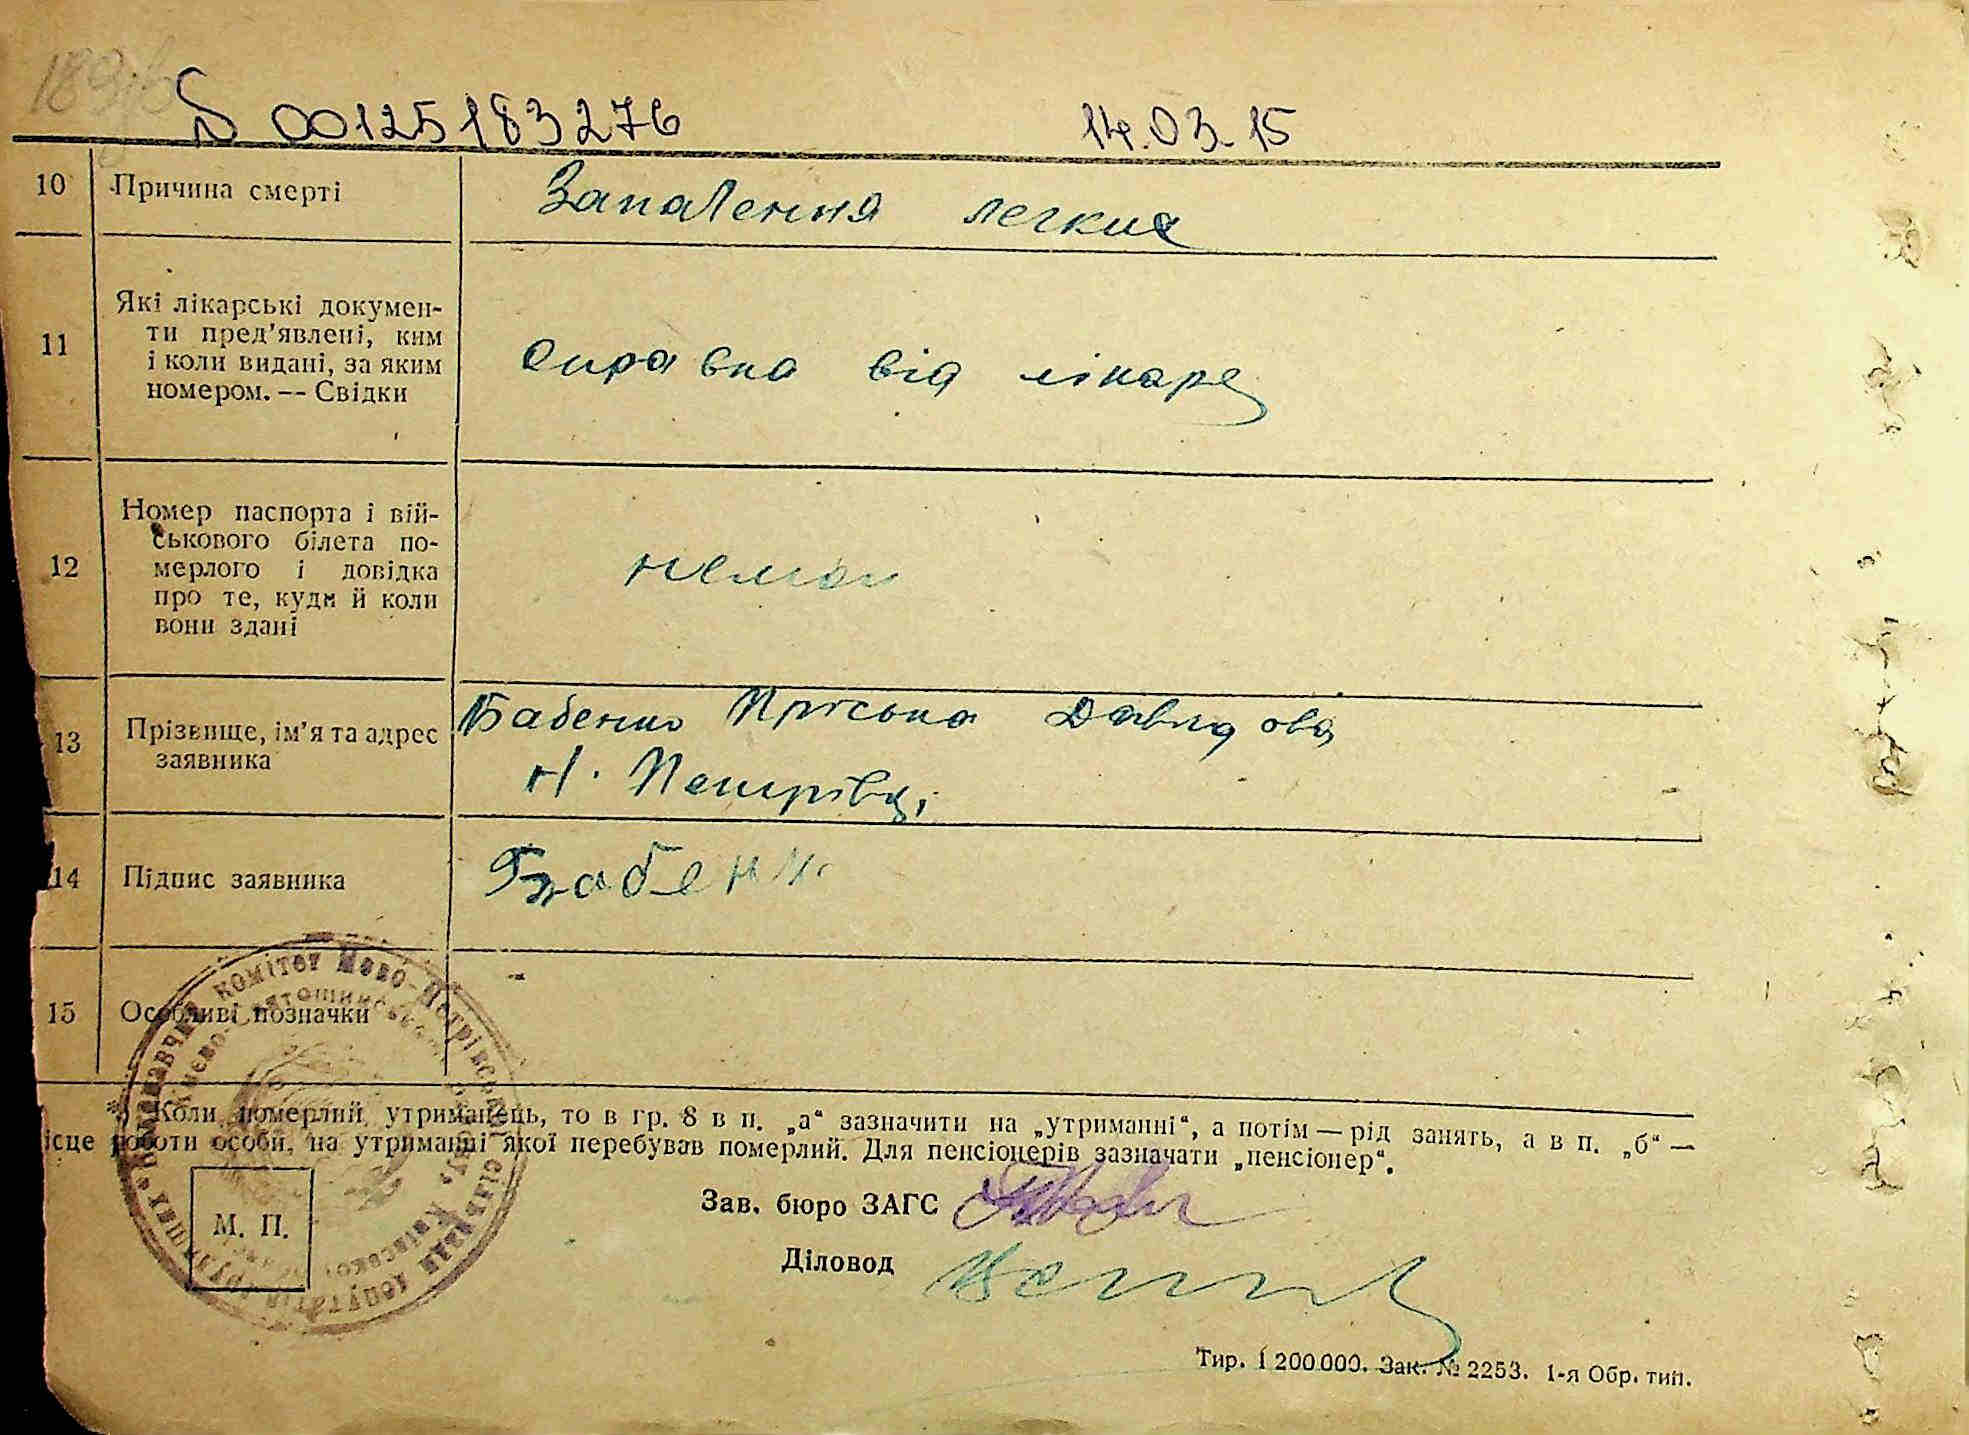 00125183276 14.03.15
10 Причина смерті Запалення легких
11 Які лікарські докумен-
ти пред'явлені, ким
і коли видані, за яким
номером. — Свідки
Справка від лікаря
12 Номер паспорта і вій-
ськового білета по-
мерлого і довідка
про те, куди й коли
вони здані
немає
13 Прізвище, ім'я та адрес
заявника
Бабенко Пріська Давидова
Н. Петрівці
14 Підпис заявника Бабенко
15 Особливі позначки
Коли померлий утриманець, то в гр. 8 в п. „а“ зазначити на „утриманні“, а потім — рід занять, а в п. „б“ —
ісце роботи особи, на утриманні якої перебував померлий. Для пенсіонерів зазначати „пенсіонер“.
М. П.
Зав. бюро ЗАГС
Діловод
Тир. 1 200 000. Зак. № 2253. 1-я Обр. тип.